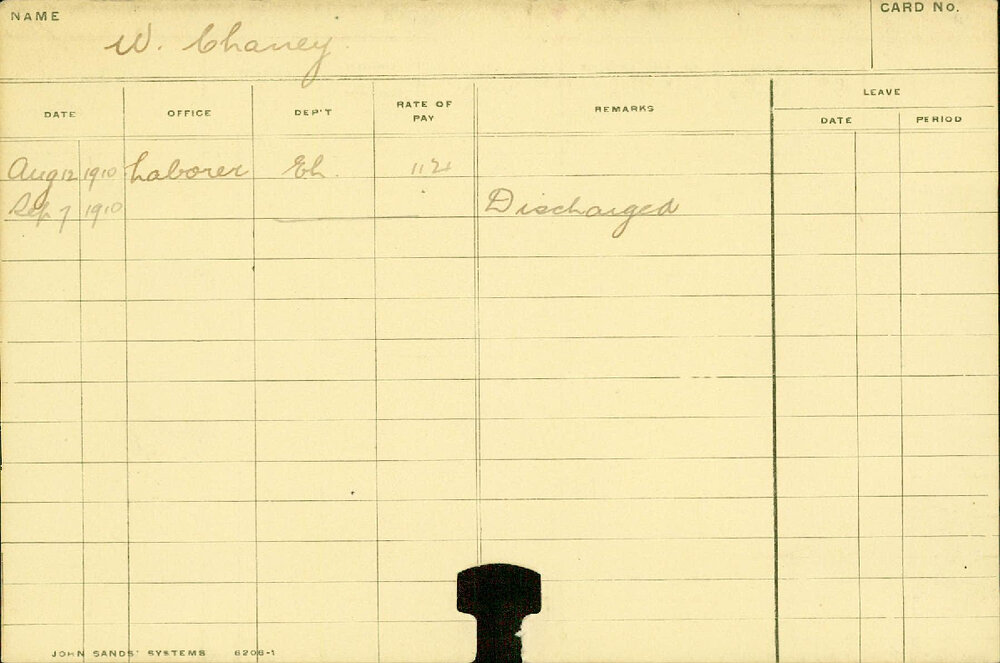 NAME
CARD No.
W. Chaney
DATE OFFICE DEP'T RATE OF PAY REMARKS LEAVE
DATE PERIOD
Aug 12 1910 Laborer
Sep 7 1910 Discharged
JOHN SANDS' SYSTEMS 6206-1